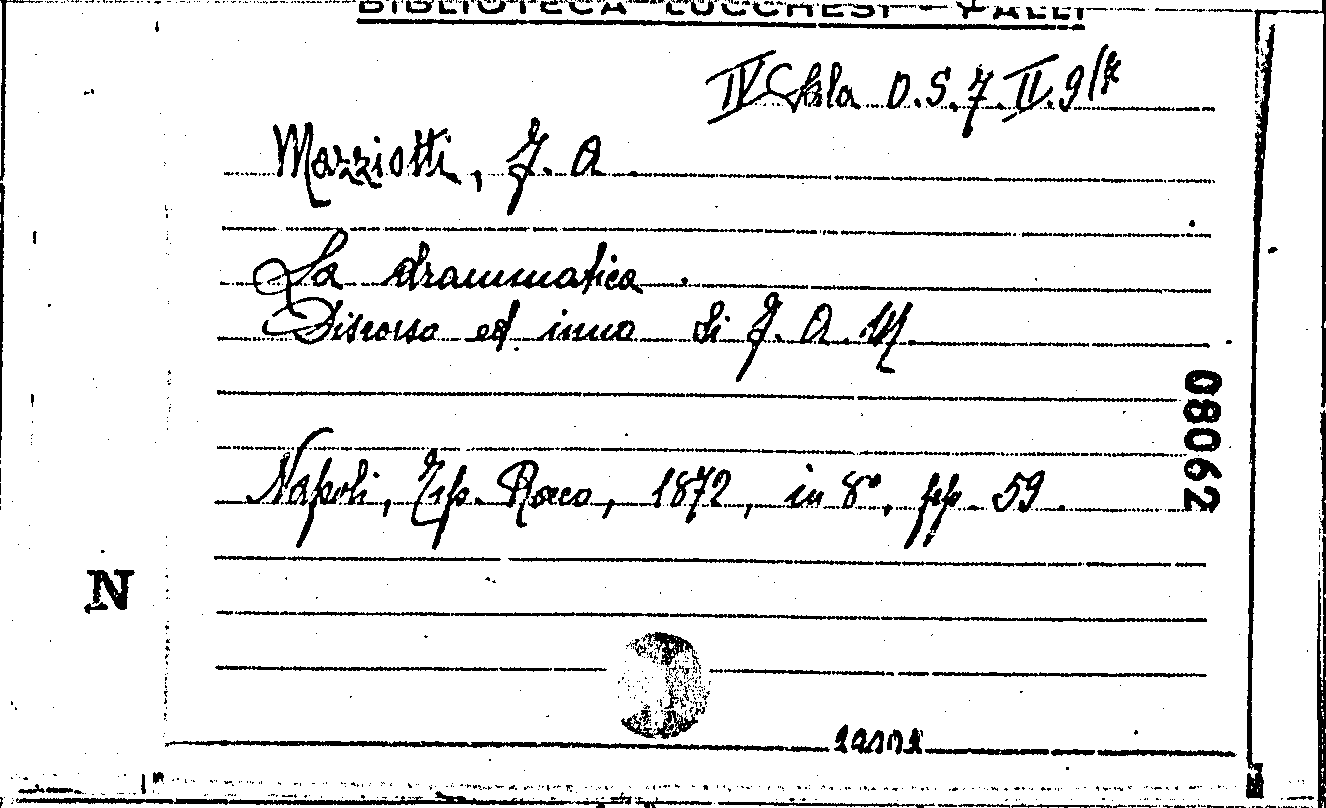 BIBLIOTECA LUCCHESI - PALLI
IV Sala O.S.7.II.9/7
Mazziotti, F. A.
La drammatica.
Discorso ed inno di F. A. M.
Napoli, Tip. Rocco, 1872, in 8°, pp. 59.
08062
N